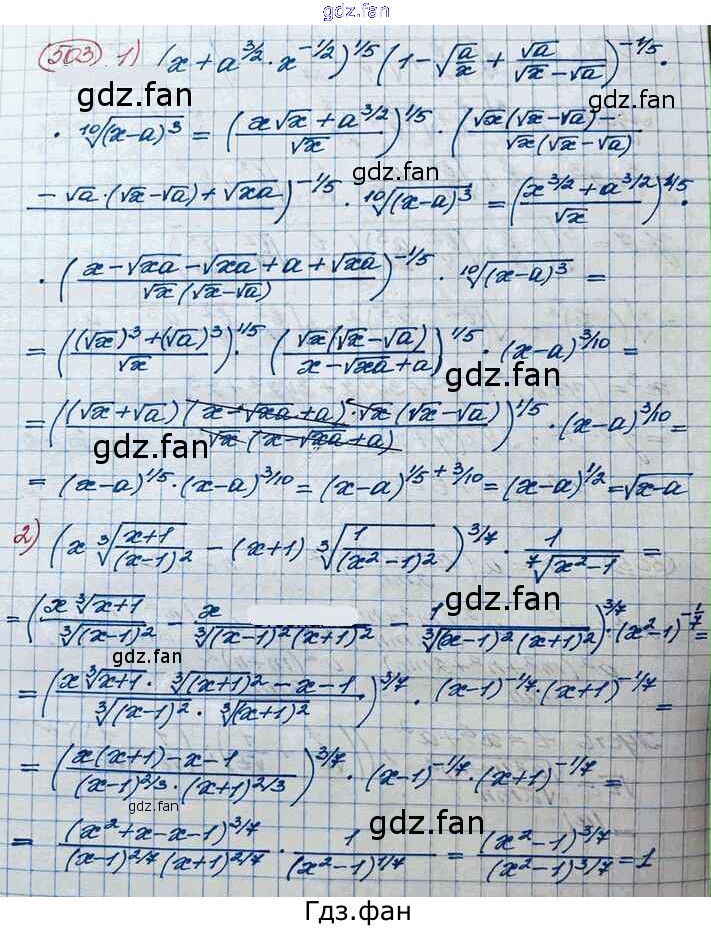 gdz.fan
503 1) (x + a^{3/2} · x^{-1/2})^{1/5} (1 - √(a/x) + √a/(√x - √a))^{-1/5} ·
gdz.fan
· ¹⁰√((x-a)³) = ((x√x + a^{3/2})/√x)^{1/5} · ((√x(√x - √a) -)/(√x(√x - √a))
gdz.fan
- √a · (√x - √a) + √(xa))^{-1/5} · ¹⁰√((x-a)³) = ((x^{3/2} + a^{3/2})/√x)^{1/5} ·
· ((x - √(xa) - √(xa) + a + √(xa))/(√x(√x - √a)))^{-1/5} · ¹⁰√((x-a)³) =
= (((√x)³ + (√a)³)/√x)^{1/5} · ((√x(√x - √a))/(x - √(xa) + a))^{1/5} · (x-a)^{3/10} =
gdz.fan
= (((√x + √a)(x - √(xa) + a) · √x(√x - √a))/(√x(x - √(xa) + a)))^{1/5} · (x-a)^{3/10} =
gdz.fan
= (x-a)^{1/5} · (x-a)^{3/10} = (x-a)^{1/5 + 3/10} = (x-a)^{1/2} = √(x-a)
2) (x ³√((x+1)/(x-1)²) - (x+1) ³√(1/(x²-1)²))^{3/7} · 1/⁷√(x²-1) =
= ((x ³√(x+1))/³√((x-1)²) - x/³√((x-1)²(x+1)²) - 1/³√((x-1)²(x+1)²))^{3/7} · (x²-1)^{-1/7} =
gdz.fan
gdz.fan
= ((x ³√(x+1) · ³√((x+1)²) - x - 1)/(³√((x-1)²) · ³√((x+1)²)))^{3/7} · (x-1)^{-1/7} · (x+1)^{-1/7} =
= ((x(x+1) - x - 1)/((x-1)^{2/3} · (x+1)^{2/3}))^{3/7} · (x-1)^{-1/7} · (x+1)^{-1/7} =
gdz.fan
gdz.fan
= (x² + x - x - 1)^{3/7}/((x-1)^{2/7}(x+1)^{2/7}) · 1/(x²-1)^{1/7} = (x²-1)^{3/7}/(x²-1)^{3/7} = 1
Гдз.фан